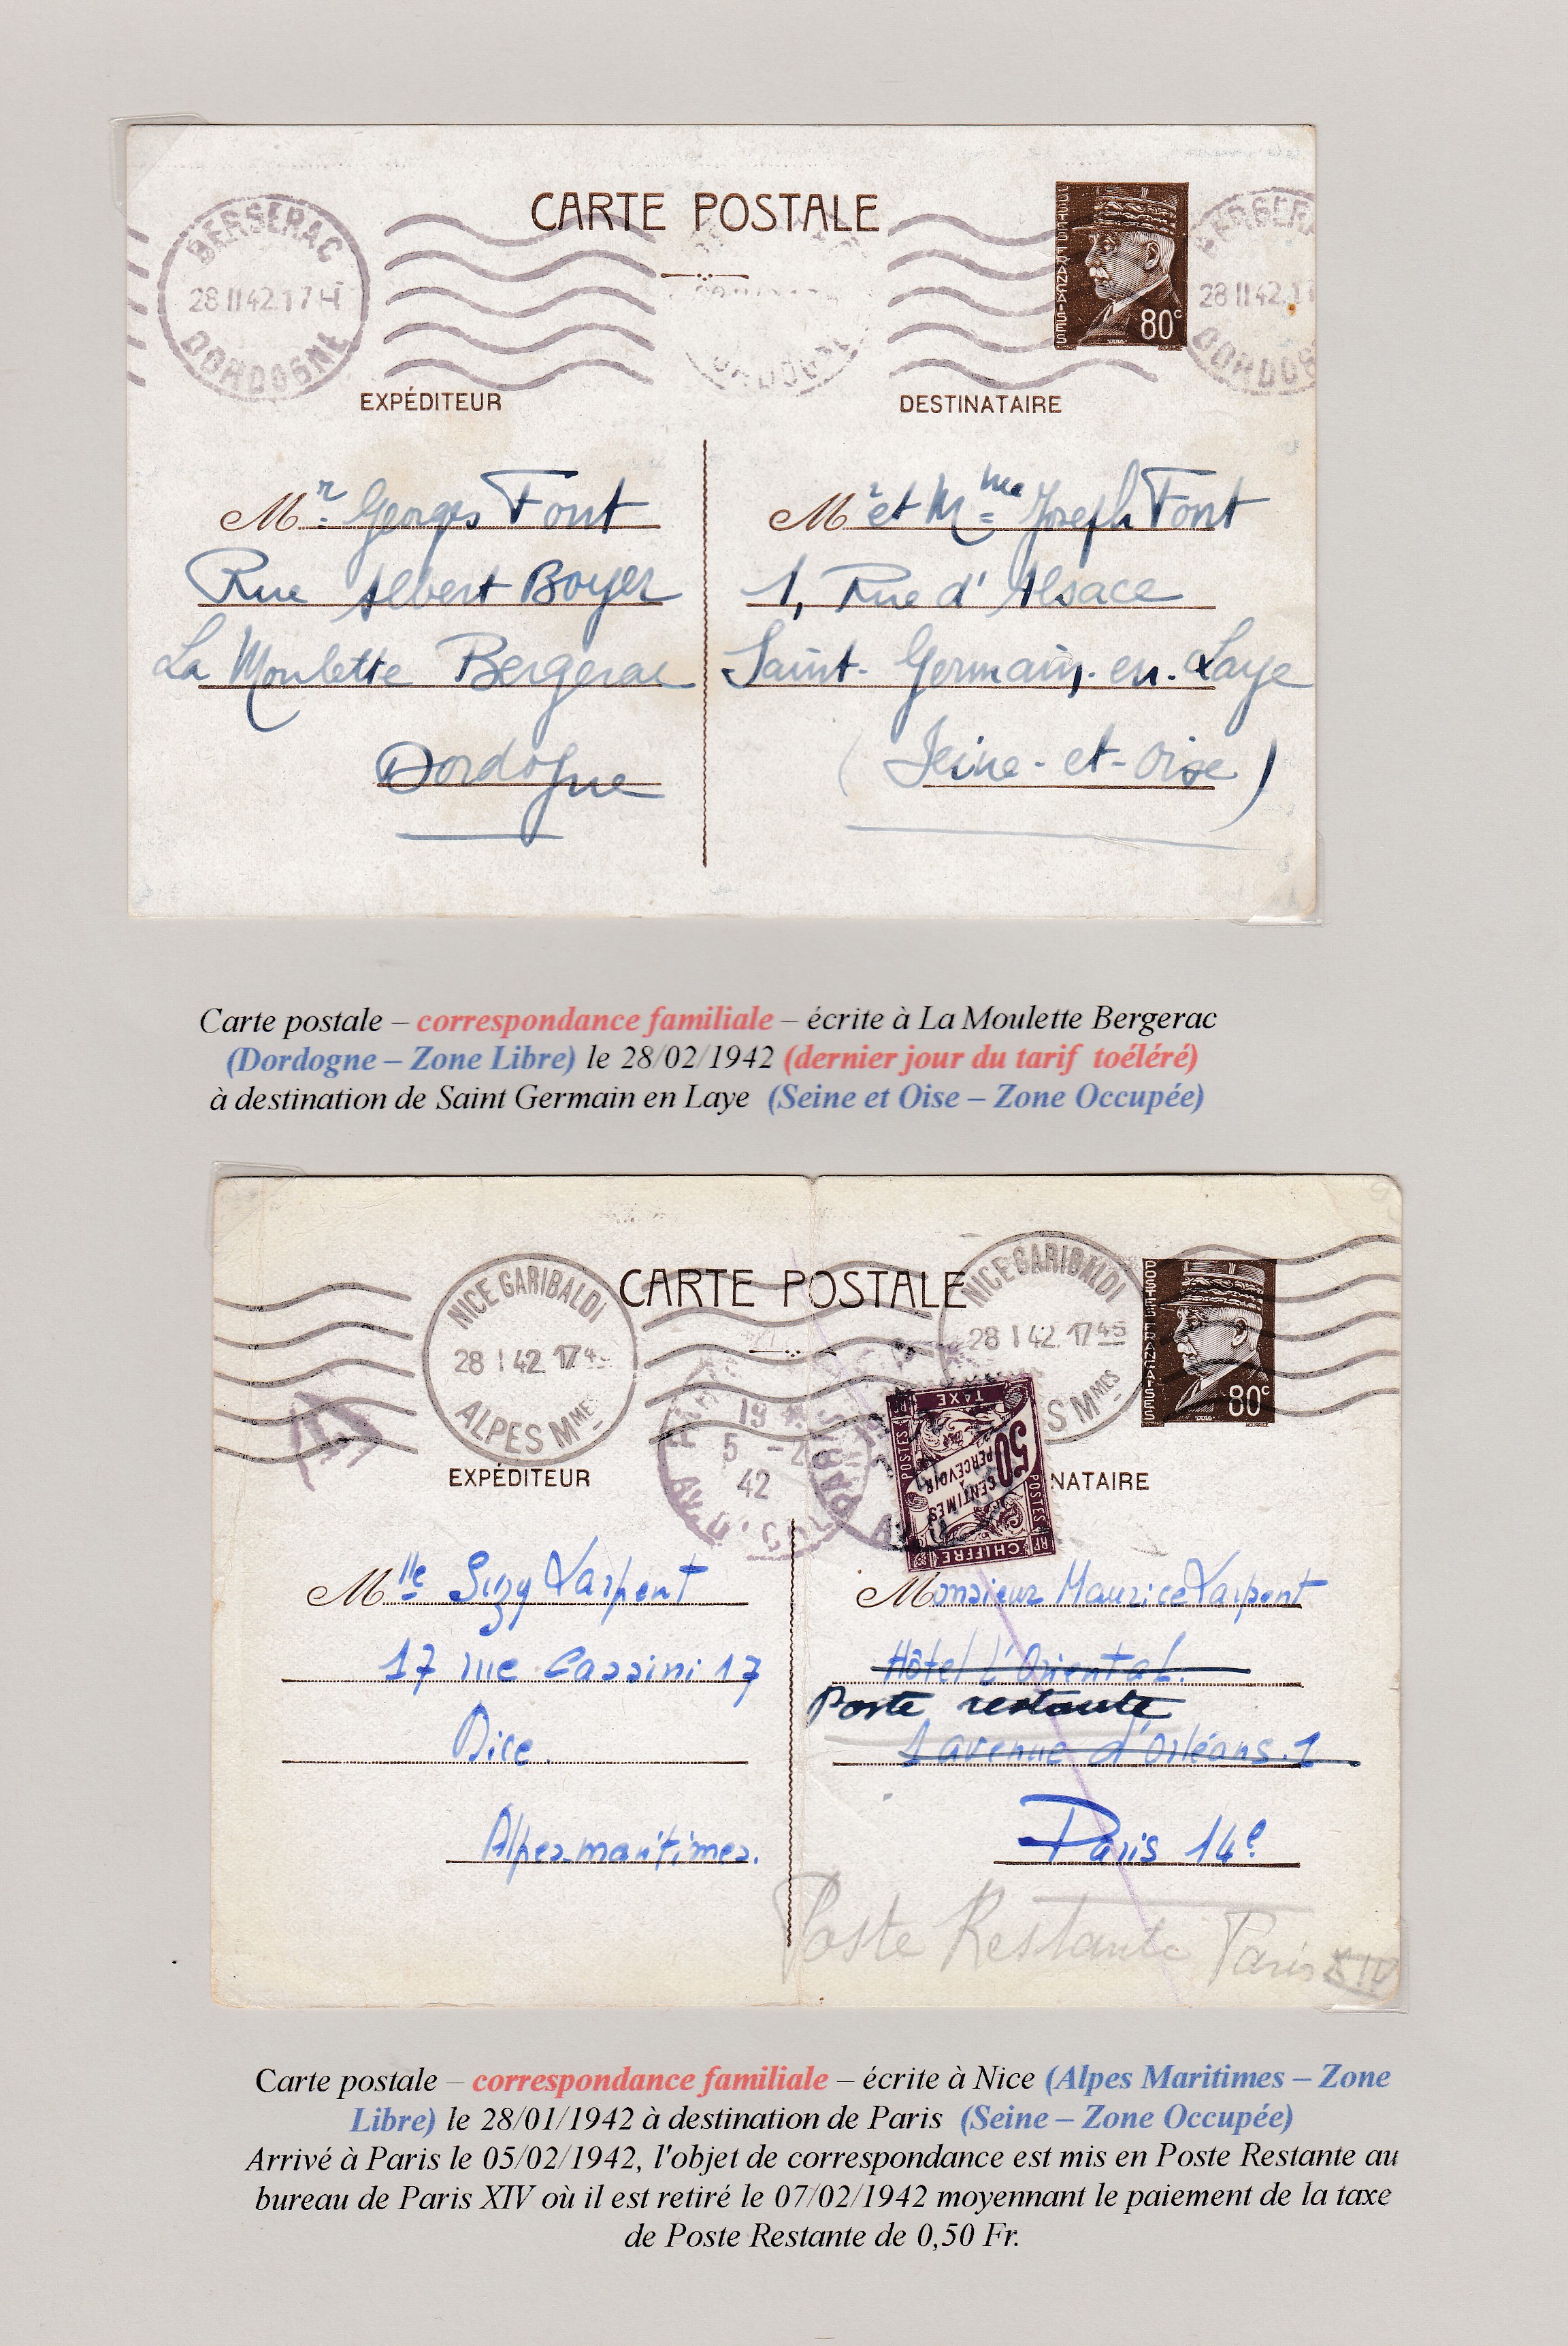 CARTE POSTALE
BERGERAC
28 II 42. 17 H
DORDOGNE
POSTES FRANÇAISES
80c
28 II 42. 1
EXPÉDITEUR
DESTINATAIRE
Mr Georges Font
Rue Albert Boyer
La Moulette Bergerac
Dordogne
Mr et Mme Joseph Font
1, Rue d'Alsace
Saint-Germain-en-Laye
(Seine-et-Oise)
Carte postale – correspondance familiale – écrite à La Moulette Bergerac
(Dordogne – Zone Libre) le 28/02/1942 (dernier jour du tarif toéléré)
à destination de Saint Germain en Laye (Seine et Oise – Zone Occupée)
CARTE POSTALE
NICE GARIBALDI
28 I 42 17 4
ALPES Mmes
NICE GARIBALDI
28 I 42. 17 45
S Mmes
POSTES FRANÇAISES
80c
19
5 -2
42
TAXE
POSTES
50
CENTIMES
À
PERCEVOIR
POSTES
RF CHIFFRE RF
EXPÉDITEUR
NATAIRE
Mlle Suzy Larpent
17 rue Cassini 17
Nice.
Alpes-maritimes.
Monsieur Maurice Larpent
Hôtel L'Oriental.
Poste restante
1 avenue d'Orléans. 1
Paris 14e
Poste Restante Paris XIV
Carte postale – correspondance familiale – écrite à Nice (Alpes Maritimes – Zone
Libre) le 28/01/1942 à destination de Paris (Seine – Zone Occupée)
Arrivé à Paris le 05/02/1942, l'objet de correspondance est mis en Poste Restante au
bureau de Paris XIV où il est retiré le 07/02/1942 moyennant le paiement de la taxe
de Poste Restante de 0,50 Fr.